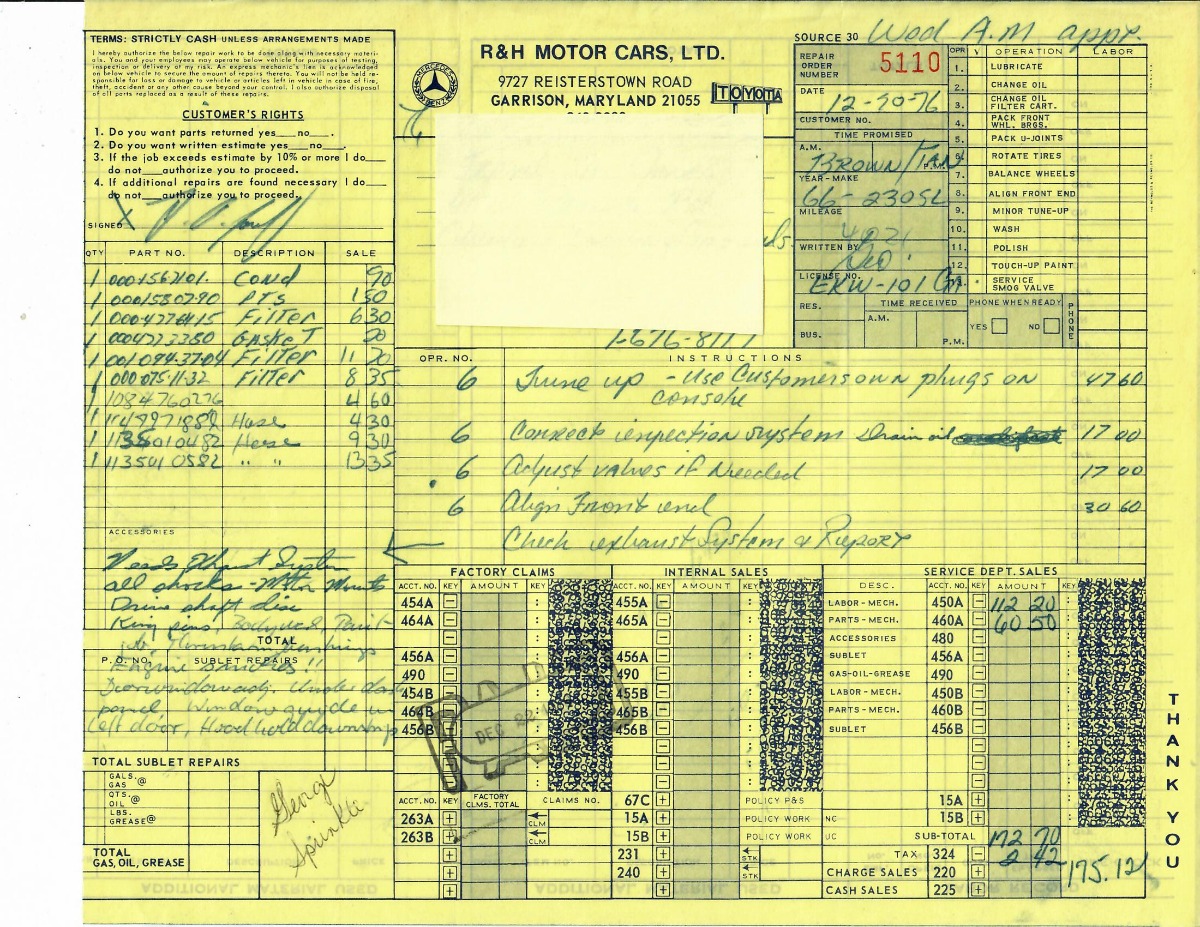 TERMS: STRICTLY CASH UNLESS ARRANGEMENTS MADE
I hereby authorize the below repair work to be done along with necessary materials. You and your employees may operate below vehicle for purposes of testing, inspection or delivery at my risk. An express mechanic's lien is acknowledged on below vehicle to secure the amount of repairs thereto. You will not be held responsible for loss or damage to vehicle or articles left in vehicle in case of fire, theft, accident or any other cause beyond your control. I also authorize disposal of all parts replaced as a result of these repairs.
CUSTOMER'S RIGHTS
1. Do you want parts returned yes___no___.
2. Do you want written estimate yes___no___.
3. If the job exceeds estimate by 10% or more I do___
do not___authorize you to proceed.
4. If additional repairs are found necessary I do___
do not___authorize you to proceed.
SIGNED X
R&H MOTOR CARS, LTD.
9727 REISTERSTOWN ROAD
GARRISON, MARYLAND 21055
MERCEDES BENZ
TOYOTA
SOURCE 30 Wed A.M appt.
REPAIR ORDER NUMBER 5110
DATE 12-20-76
CUSTOMER NO.
TIME PROMISED
A.M. P.M.
BROWN/TAN
YEAR-MAKE
66-230SL
MILEAGE
WRITTEN BY
LICENSE NO.
EKW-101
RES. TIME RECEIVED PHONE WHEN READY PHONE
BUS. A.M. P.M. YES NO
OPR √ OPERATION LABOR
1. LUBRICATE
2. CHANGE OIL
3. CHANGE OIL FILTER CART.
4. PACK FRONT WHL. BRGS.
5. PACK U-JOINTS
6. ROTATE TIRES
7. BALANCE WHEELS
8. ALIGN FRONT END
9. MINOR TUNE-UP
10. WASH
11. POLISH
12. TOUCH-UP PAINT
13. SERVICE SMOG VALVE
1-676-8117
QTY PART NO. DESCRIPTION SALE
1 0001562101. Cond 90
1 0001580790 PTS 1 50
1 0004776415 Filter 6 30
1 0004773380 Gasket 20
1 001-094-37-04 Filter 11 70
1 000-075-11-32 Filter 8 35
1 1084760276 4 60
1 Hose 4 30
1 1135010482 Hose 9 30
1 1135010582 " " 13 35
OPR. NO. INSTRUCTIONS
6 Tune up - Use Customers own plugs on console 47 60
6 Correct inspection system Drain oil 17 00
6 Adjust valves if Needed 17 00
6 Align Front end 30 60
Check exhaust System & Report
ACCESSORIES
Needs Exhaust System
all shocks - Motor Mounts
Drive shaft disc
King pins, Bodywork, Paint
TOTAL
P.O. NO. SUBLET REPAIRS
Engine smokes!!
Door window adj. Under dash
panel Window guide in
left door, Hood hold down
TOTAL SUBLET REPAIRS
GALS. GAS @
QTS. OIL @
LBS. GREASE @
TOTAL GAS, OIL, GREASE
George Sprinkle
FACTORY CLAIMS
ACCT. NO. KEY AMOUNT KEY
454A
464A
456A
490
454B
464B
456B
ACCT. NO. KEY FACTORY CLMS. TOTAL CLAIMS NO.
263A CLM
263B CLM
INTERNAL SALES
ACCT. NO. KEY AMOUNT KEY
455A
465A
456A
490
455B
465B
456B
67C POLICY P&S 15A
15A POLICY WORK NC 15B
15B POLICY WORK UC
231 STK
240 STK
PAID
DEC 22
SERVICE DEPT. SALES
DESC. ACCT. NO. KEY AMOUNT KEY
LABOR-MECH. 450A 112 20
PARTS-MECH. 460A 60 50
ACCESSORIES 480
SUBLET 456A
GAS-OIL-GREASE 490
LABOR-MECH. 450B
PARTS-MECH. 460B
SUBLET 456B
SUB-TOTAL 172 70
TAX 324 2 42
CHARGE SALES 220 175.12
CASH SALES 225
THANK YOU